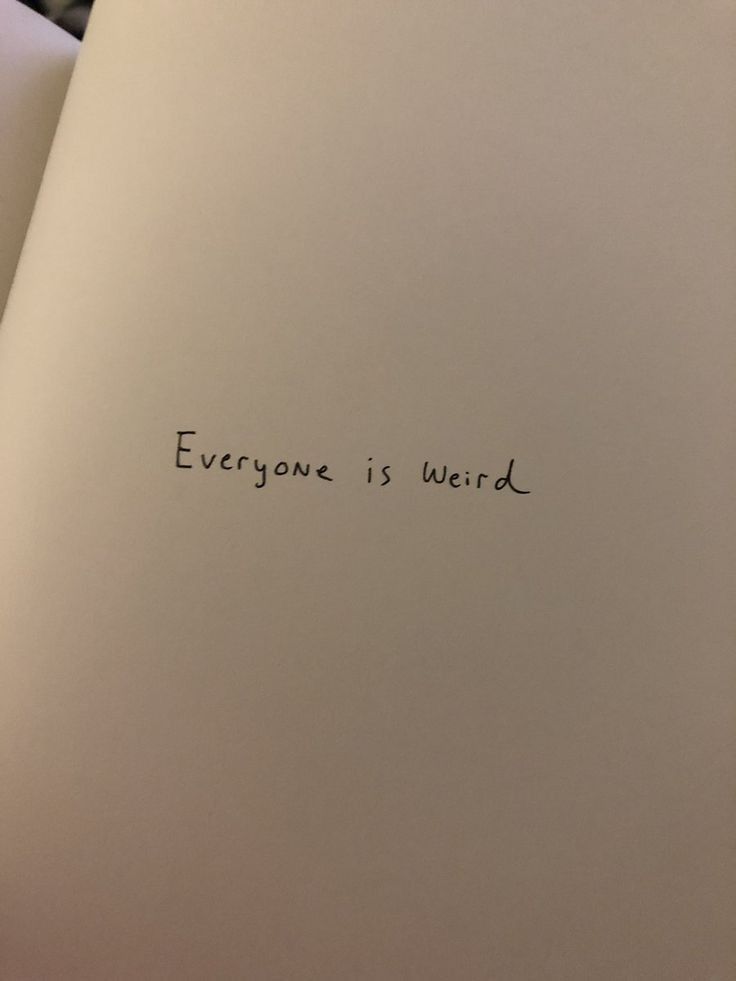 Everyone is weird